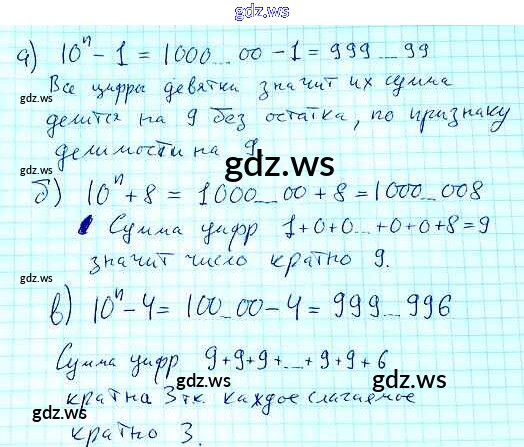 gdz.ws
а) 10ⁿ - 1 = 1000...00 - 1 = 999...99
gdz.ws
Все цифры девятки значит их сумма
gdz.ws
делится на 9 без остатка, по признаку
делимости на 9.
gdz.ws
б) 10ⁿ + 8 = 1000...00 + 8 = 1000...008
Сумма цифр 1+0+0...+0+0+8=9
gdz.ws
значит число кратно 9.
gdz.ws
gdz.ws
в) 10ⁿ - 4 = 100...00 - 4 = 999...996
Сумма цифр 9+9+9+...+9+9+6
gdz.ws
gdz.ws
кратна 3 т.к. каждое слагаемое
кратно 3.
gdz.ws